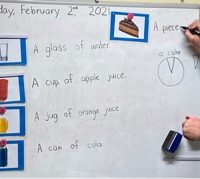 day, February 2nd. 2021
A piece
a cake
A glass of water.
A cup of apple juice.
A jug of orange juice
A can of cola